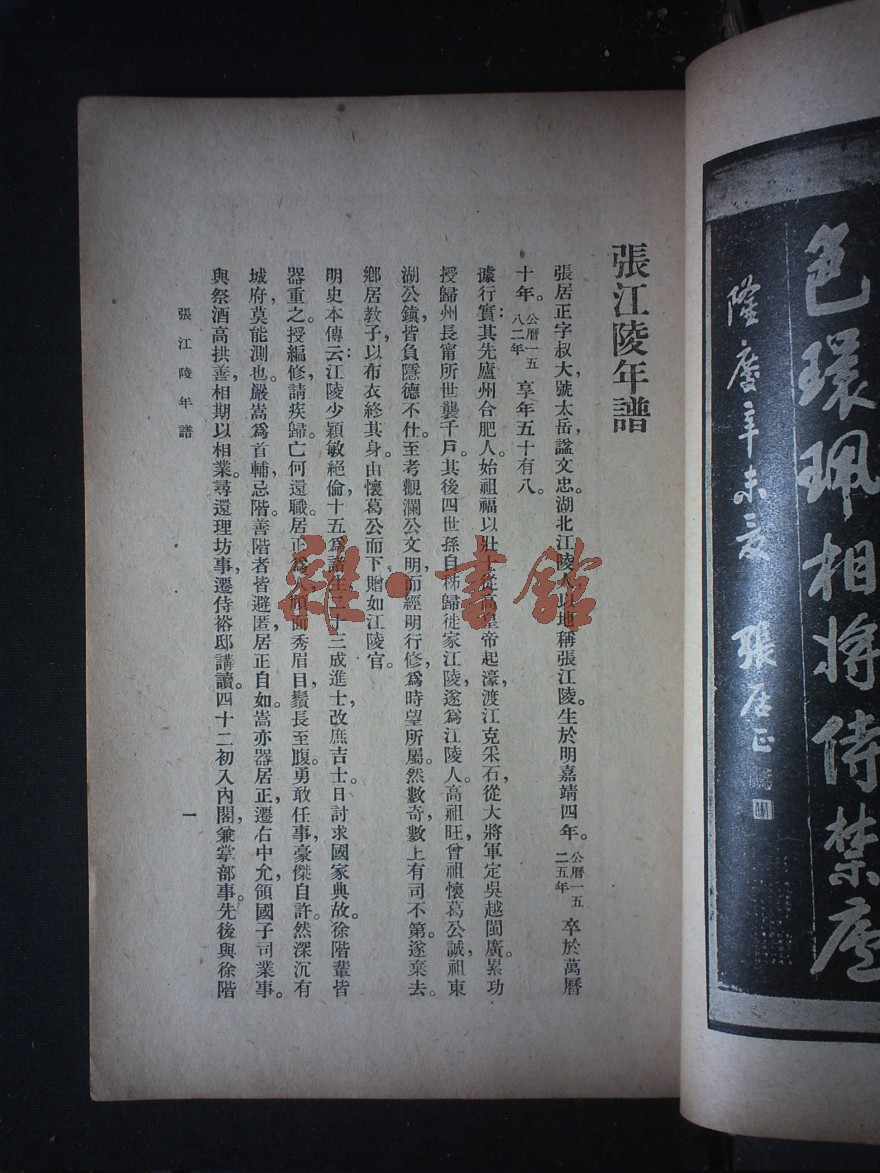 色環珮相將侍禁廬
隆慶辛未夏
張居正
張江陵年譜
張居正字叔大號太岳諡文忠。湖北江陵人以地稱張江陵。生於明嘉靖四年。公曆一五二五年 卒於萬曆
十年。公曆一五八二年 享年五十有八。
據行實：其先廬州合肥人。始祖福以壯士從高皇帝起濠，渡江克采石，從大將軍定吳越閩廣。累功
授歸州長甯所世襲千戶。其後四世孫自秭歸徙家江陵，遂爲江陵人。高祖旺，曾祖懷葛公誠，祖東
湖公鎮，皆負隱德不仕。至考觀瀾公文明，而經明行修，爲時望所屬。然數奇，數上有司不第。遂棄去。
鄉居教子，以布衣終其身。由懷葛公而下，贈如江陵官。
明史本傳云：江陵少穎敏絕倫，十五爲諸生，二十三成進士，改庶吉士。日討求國家典故。徐階輩皆
器重之。授編修，請疾歸。亡何還職。居正爲人頎面秀眉目，鬚長至腹。勇敢任事，豪傑自許。然深沉有
城府，莫能測也。嚴嵩爲首輔，忌階。善階者皆避匿。居正自如。嵩亦器居正，遷右中允，領國子司業事。
與祭酒高拱善，相期以相業。尋還理坊事，遷侍裕邸講讀。四十二初入內閣，兼掌部事。先後與徐階
張江陵年譜
一
雜·書館